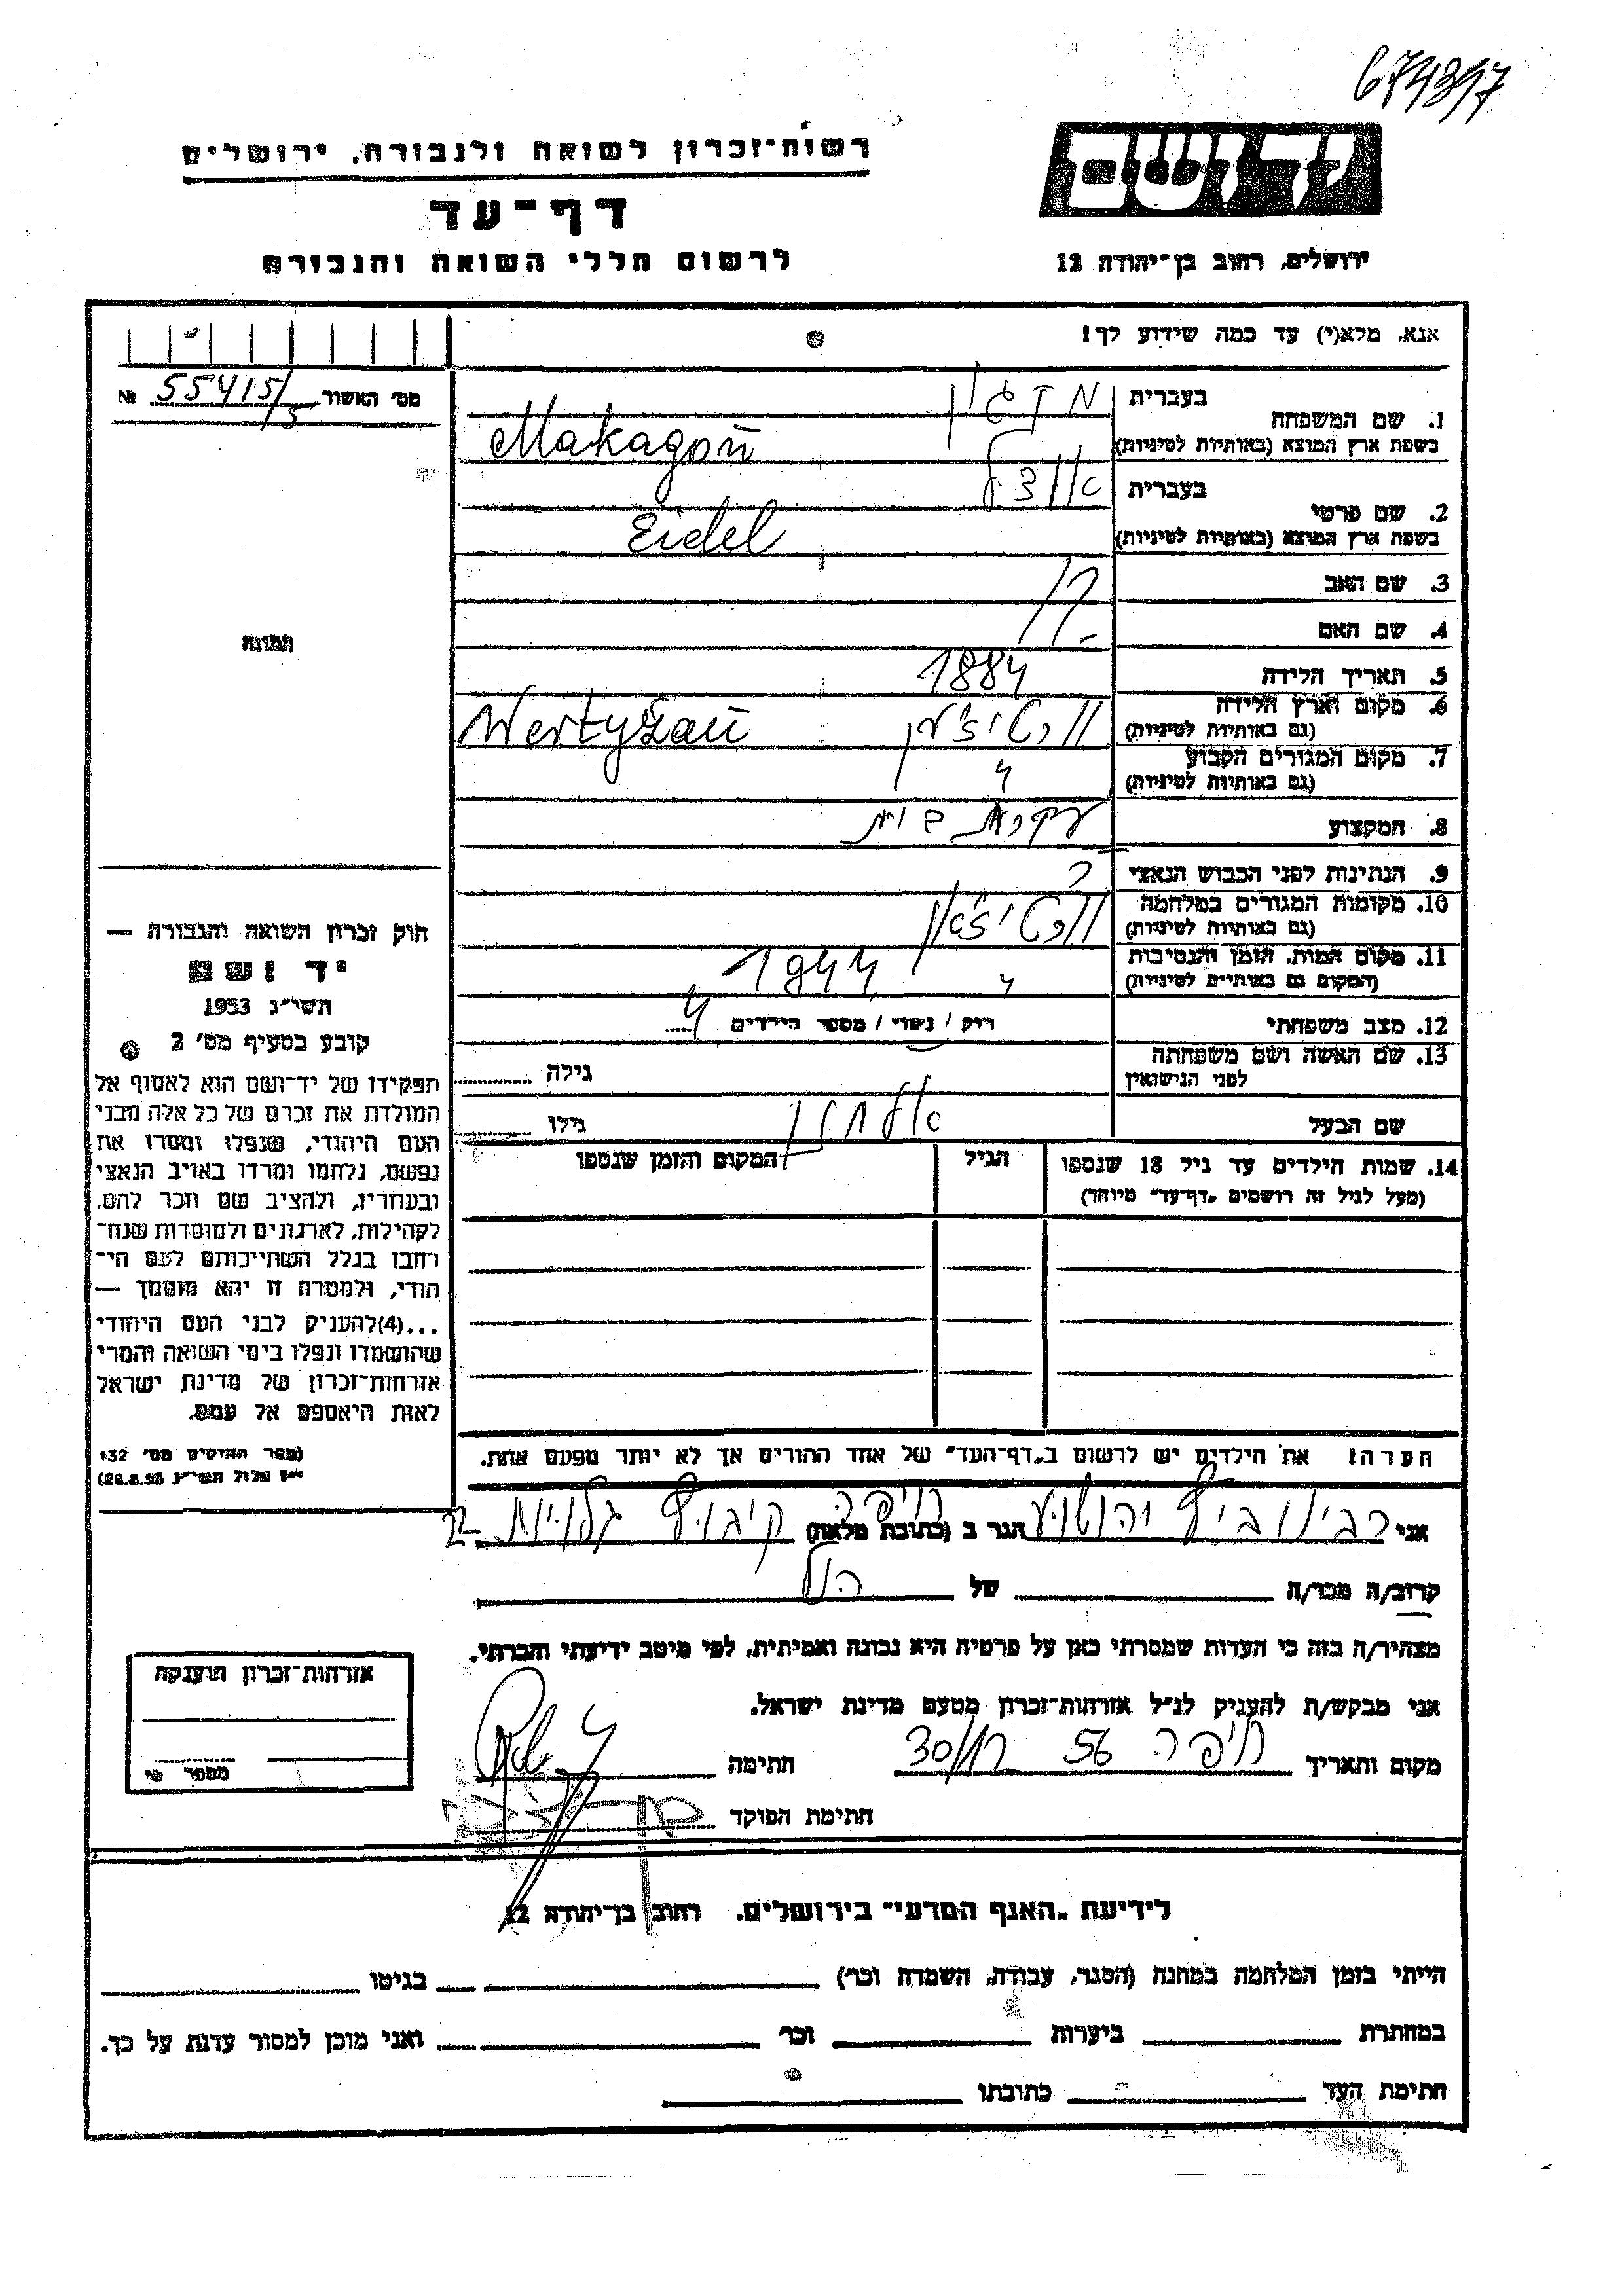 674397
רשות־זכרון לשואה ולגבורה, ירושלים
דף־עד
לרשום חללי השואה והגבורה
יד ושם
ירושלים, רחוב בן־יהודה 12
אנא, מלא(י) עד כמה שידוע לך!
מס׳ האשור 55415/3 №
1. שם המשפחה
בעברית
בשפת ארץ המוצא (באותיות לטיניות) Makagon
2. שם פרטי
בעברית
בשפת ארץ המוצא (באותיות לטיניות) Eidel
3. שם האב ?
4. שם האם
5. תאריך הלידה 1884
6. מקום וארץ הלידה
(גם באותיות לטיניות) Wertyżan
7. מקום המגורים הקבוע
(גם באותיות לטיניות) "
8. המקצוע עקרת בית
9. הנתינות לפני הכבוש הנאצי ?
10. מקומות המגורים במלחמה
(גם באותיות לטיניות)
11. מקום המות, הזמן והנסיבות
(המקום גם באותיות לטיניות) " 1944
12. מצב משפחתי רוק / נשוי / מספר הילדים 4
13. שם האשה ושם משפחתה
לפני הנישואין גילה
שם הבעל גילו
14. שמות הילדים עד גיל 18 שנספו
(מעל לגיל זה רושמים „דף־עד״ מיוחד)
הגיל
המקום והזמן שנספו
הערה: את הילדים יש לרשום ב„דף־העד״ של אחד ההורים אך לא יותר מפעם אחת.
תמונה
חוק זכרון השואה והגבורה —
יד ושם
תשי״ג 1953
קובע בסעיף מס׳ 2
תפקידו של יד־ושם הוא לאסוף אל
המולדת את זכרם של כל אלה מבני
העם היהודי, שנפלו ומסרו את
נפשם, נלחמו ומרדו באויב הנאצי
ובעוזריו, ולהציב שם וזכר להם,
לקהילות, לארגונים ולמוסדות שנח־
רבו בגלל השתייכותם לעם הי־
הודי, ולמטרה זו יהא מוסמך —
...(4) להעניק לבני העם היהודי
שהושמדו ונפלו בימי השואה והמרי
אזרחות־זכרון של מדינת ישראל
לאות היאספם אל עמם.
(ספר החוקים מס׳ 132
י״ז אלול תשי״ג 28.8.53)
אני רבינוביץ יהושע הגר ב (כתובת מלאה) חיפה קיבוץ גלויות 22
קרוב/ה מכר/ה של הנ״ל
מצהיר/ה בזה כי העדות שמסרתי כאן על פרטיה היא נכונה ואמיתית, לפי מיטב ידיעתי והכרתי.
אני מבקש/ת להעניק לנ״ל אזרחות־זכרון מטעם מדינת ישראל.
מקום ותאריך חיפה 56 חתימה
חתימת הפוקד
אזרחות־זכרון הוענקה
מספר №
לידיעת „האגף המדעי״ בירושלים, רחוב בן־יהודה 12
הייתי בזמן המלחמה במחנה (הסגר, עבודה, השמדה וכר׳) בגיטו
במחתרת ביערות וכר׳ ואני מוכן למסור עדות על כך.
חתימת העד כתובתו